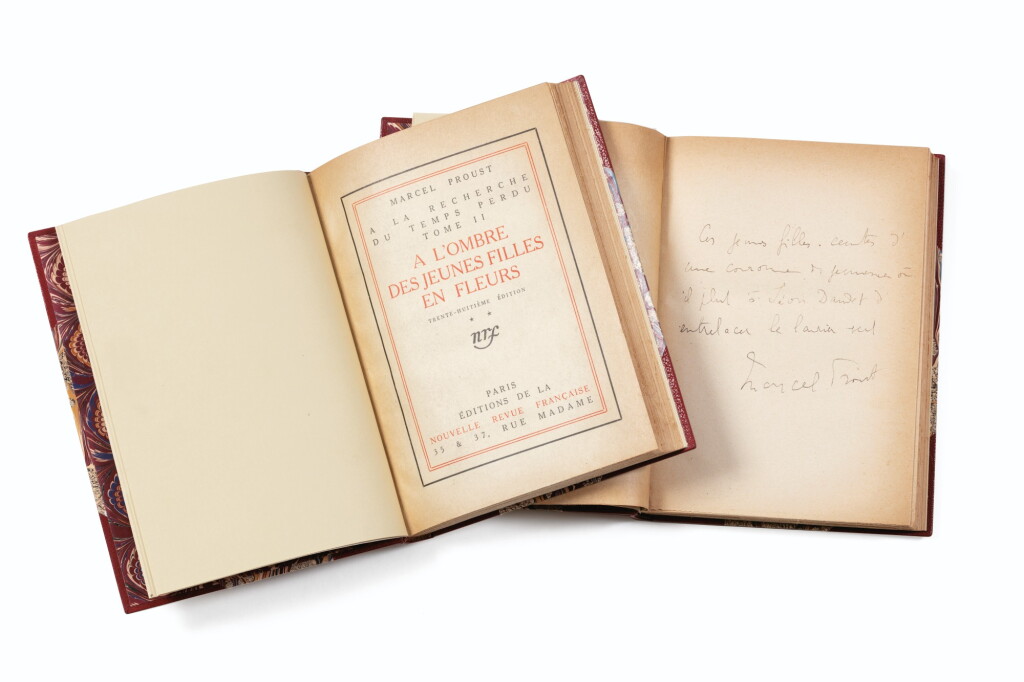 MARCEL PROUST
A LA RECHERCHE
DU TEMPS PERDU
TOME II
A L'OMBRE
DES JEUNES FILLES
EN FLEURS
TRENTE-HUITIÈME ÉDITION
* *
nrf
PARIS
ÉDITIONS DE LA
NOUVELLE REVUE FRANÇAISE
35 & 37, RUE MADAME
Ces jeunes filles, ceintes d'
une couronne de jasmin où
il plut à Léon Daudet d'
entrelacer le laurier vert
Marcel Proust